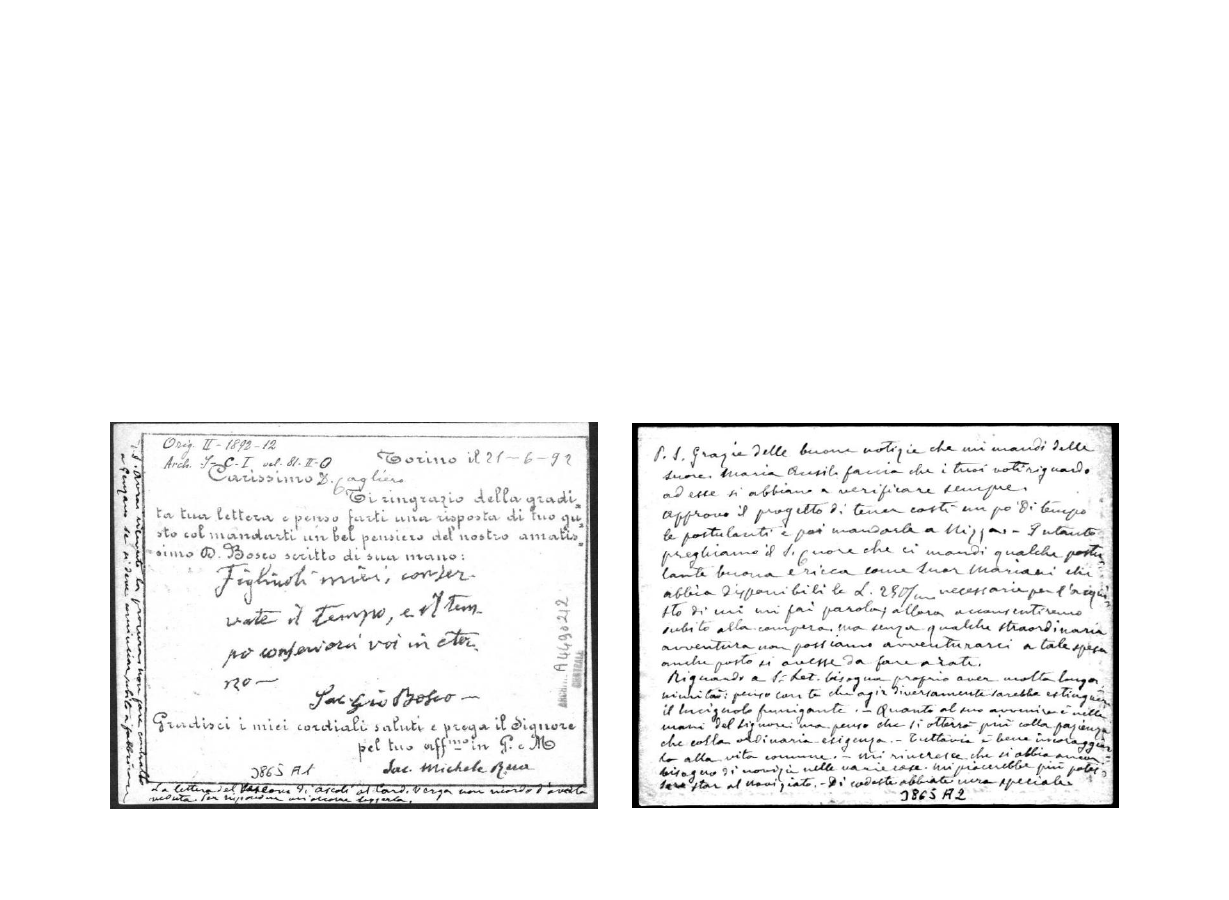 Orig. II - 1892-12
Arch. S-C-I vol. 81-II-O
Torino il 21-6-92
Carissimo D. Cagliero
Ti ringrazio della gradi-
ta tua lettera e penso farti una risposta di tuo gu-
sto col mandarti un bel pensiero del nostro amatis-
simo D. Bosco scritto di sua mano:
Figliuoli miei, conser-
vate il tempo, e il tem-
po conserverà voi in eter-
no —
Sac Gio Bosco —
Gradisci i miei cordiali saluti e prega il Signore
pel tuo aff.mo in G. e M
Sac. Michele Rua
3865 A1
La lettera del Vescovo di Ascoli al Card. Verga non ricordo d'averla
veduta. Per rispondere mi occorre leggerla.
A449012
CENTRALE
P. S. Grazie delle buone notizie che mi mandi delle
suore. Maria Ausil. faccia che i tuoi voti riguardo
ad esse si abbiano a verificare sempre.
Approvo il progetto di tener costì un po' di tempo
le postulanti e poi mandarle a Nizza. - Intanto
preghiamo il Signore che ci mandi qualche postu-
lante buona e ricca come Suor Mariani che
abbia disponibili le L. necessarie per l'acqui-
sto di cui mi fai parola; allora acconsentiremo
subito alla compera, ma senza qualche straordinaria
avventura non possiamo avventurarci a tale spesa
anche posto si avesse da fare a rate.
Riguardo a S. Let. bisogna proprio aver molta longa-
nimità: penso con te che agir diversamente sarebbe estinguere
il lucignolo fumigante. - Quanto al suo avvenire è nelle
mani del Signore; ma penso che si otterrà più colla pazienza
che colla ordinaria esigenza. - Tuttavia è bene incoraggiar-
la alla vita comune. - Mi rincresce che si abbia
bisogno di novizie nelle varie case. Mi piacerebbe più potes-
sero star al noviziato. - Di codeste abbiate cura speciale.
3865 A2